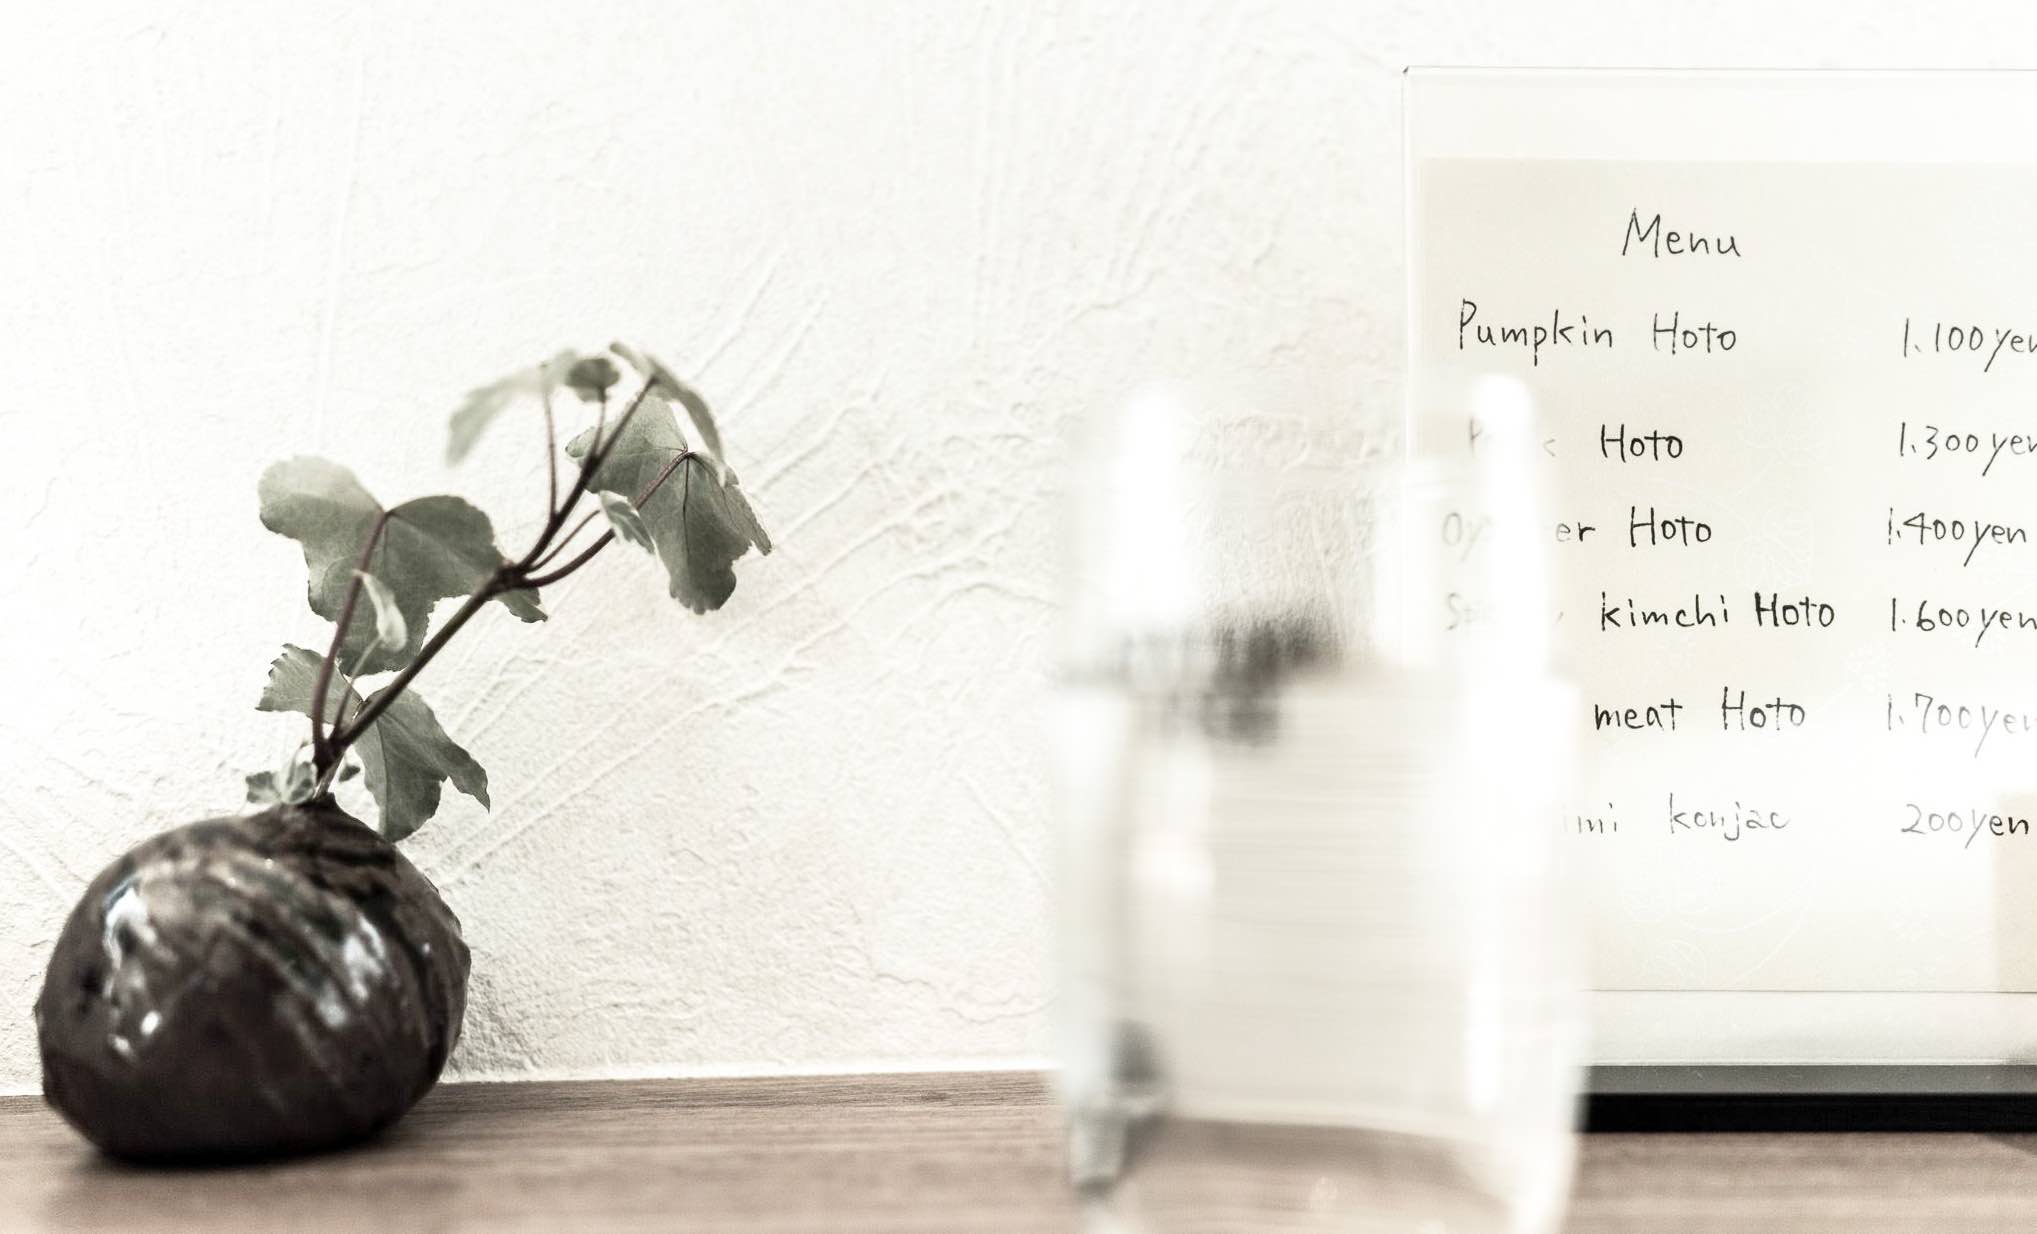 Menu
Pumpkin Hoto 1.100yen
Hoto 1.300yen
Hoto 1.400yen
kimchi Hoto 1.600yen
meat Hoto 1.700yen
konjac 200yen